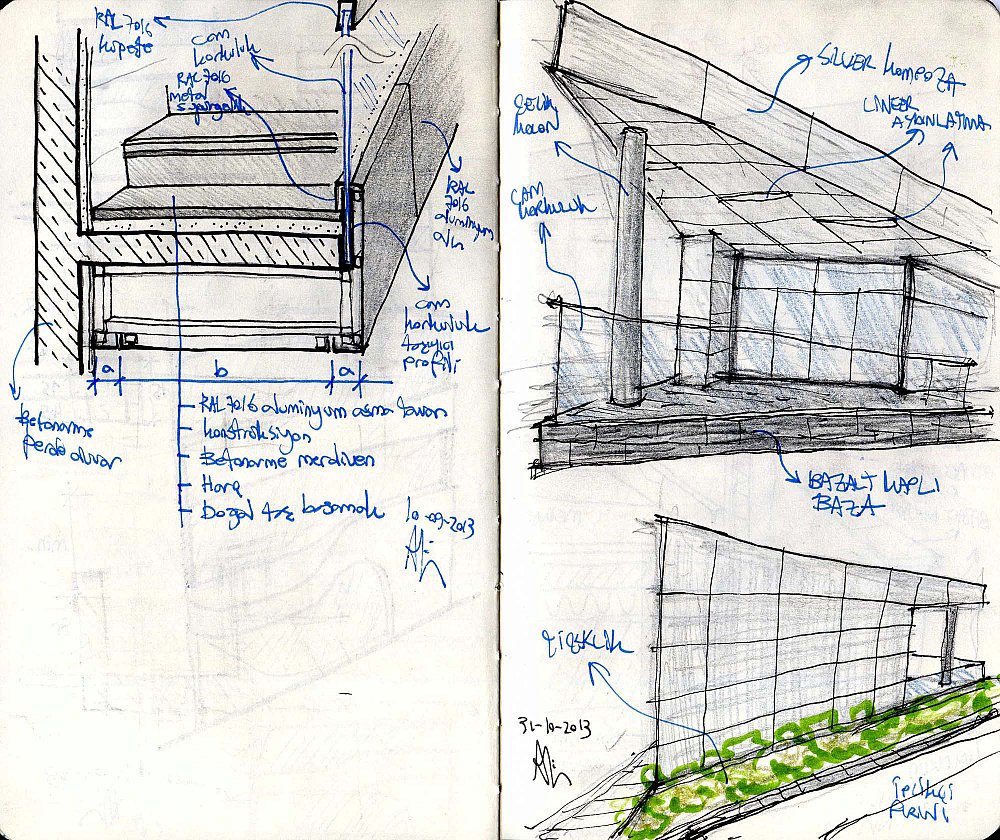 RAL 7016
küpeşte
cam
korkuluk
RAL 7016
metal
süpürgelik
RAL
7016
aluminyum
alın
cam
korkuluk
taşıyıcı
profili
a
b
a
Betonarme
perde duvar
RAL 7016 aluminyum asma tavan
konstrüksiyon
Betonarme merdiven
Harç
Doğal taş basamak
10-09-2013
SILVER kompoze
LINEER
AYDINLATMA
ÇELİK
KOLON
CAM
KORKULUK
BAZALT KAPLI
BAZA
ÇİÇEKLİK
31-10-2013